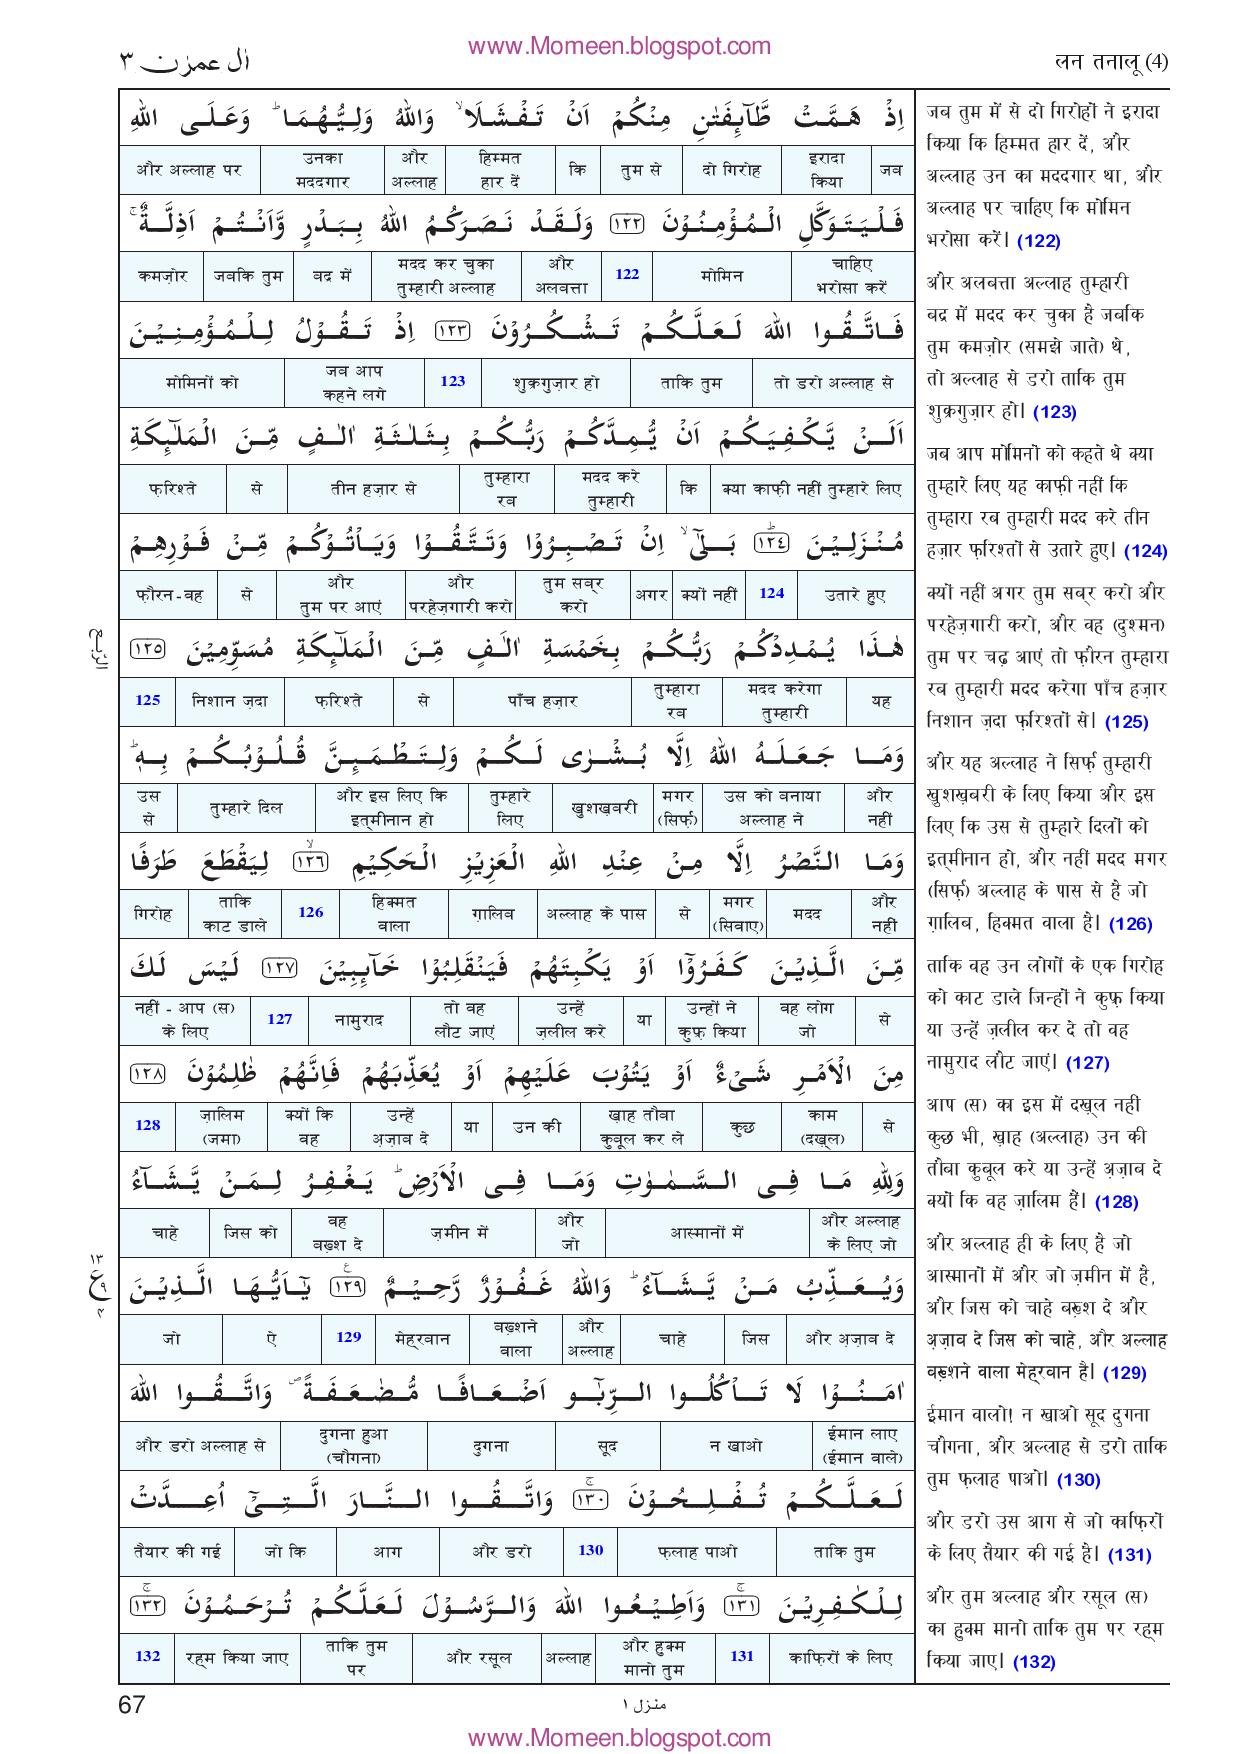 www.Momeen.blogspot.com
اٰل عمرٰن ٣
लन तनालू (4)
اِذْ هَمَّتْ طَّآىِٕفَتٰنِ مِنْكُمْ اَنْ تَفْشَلَا ۙ وَاللّٰهُ وَلِيُّهُمَا ؕ وَعَلَى اللّٰهِ
जब | इरादा किया | दो गिरोह | तुम से | कि | हिम्मत हार दें | और अल्लाह | उनका मददगार | और अल्लाह पर
فَلْيَتَوَكَّلِ الْمُؤْمِنُوْنَ ١٢٢ وَلَقَدْ نَصَرَكُمُ اللّٰهُ بِبَدْرٍ وَّاَنْتُمْ اَذِلَّةٌ ۚ
चाहिए भरोसा करें | मोमिन | 122 | और अलबत्ता | मदद कर चुका तुम्हारी अल्लाह | बद्र में | जबकि तुम | कमज़ोर
فَاتَّقُوا اللّٰهَ لَعَلَّكُمْ تَشْكُرُوْنَ ١٢٣ اِذْ تَقُوْلُ لِلْمُؤْمِنِيْنَ
तो डरो अल्लाह से | ताकि तुम | शुक्रगुज़ार हो | 123 | जब आप कहने लगे | मोमिनों को
اَلَنْ يَّكْفِيَكُمْ اَنْ يُّمِدَّكُمْ رَبُّكُمْ بِثَلٰثَةِ اٰلٰفٍ مِّنَ الْمَلٰٓىِٕكَةِ
क्या काफ़ी नहीं तुम्हारे लिए | कि | मदद करे तुम्हारी | तुम्हारा रब | तीन हज़ार से | से | फ़रिश्ते
مُنْزَلِيْنَ ؕ ١٢٤ بَلٰٓى ۙ اِنْ تَصْبِرُوْا وَتَتَّقُوْا وَيَاْتُوْكُمْ مِّنْ فَوْرِهِمْ
उतारे हुए | 124 | क्यों नहीं | अगर | तुम सब्र करो | और परहेज़गारी करो | और तुम पर आएं | से | फ़ौरन-वह
هٰذَا يُمْدِدْكُمْ رَبُّكُمْ بِخَمْسَةِ اٰلٰفٍ مِّنَ الْمَلٰٓىِٕكَةِ مُسَوِّمِيْنَ ١٢٥
الرّبع
यह | मदद करेगा तुम्हारी | तुम्हारा रब | पाँच हज़ार | से | फ़रिश्ते | निशान ज़दा | 125
وَمَا جَعَلَهُ اللّٰهُ اِلَّا بُشْرٰى لَكُمْ وَلِتَطْمَىِٕنَّ قُلُوْبُكُمْ بِهٖ ؕ
और नहीं | उस को बनाया अल्लाह ने | मगर (सिर्फ़) | खुशख़बरी | तुम्हारे लिए | और इस लिए कि इत्मीनान हो | तुम्हारे दिल | उस से
وَمَا النَّصْرُ اِلَّا مِنْ عِنْدِ اللّٰهِ الْعَزِيْزِ الْحَكِيْمِ ۙ ١٢٦ لِيَقْطَعَ طَرَفًا
और नहीं | मदद | मगर (सिवाए) | से | अल्लाह के पास | ग़ालिब | हिक्मत वाला | 126 | ताकि काट डाले | गिरोह
مِّنَ الَّذِيْنَ كَفَرُوْٓا اَوْ يَكْبِتَهُمْ فَيَنْقَلِبُوْا خَآىِٕبِيْنَ ١٢٧ لَيْسَ لَكَ
से | वह लोग जो | उन्हों ने कुफ़ किया | या | उन्हें ज़लील करे | तो वह लौट जाएं | नामुराद | 127 | नहीं - आप (स) के लिए
مِنَ الْاَمْرِ شَيْءٌ اَوْ يَتُوْبَ عَلَيْهِمْ اَوْ يُعَذِّبَهُمْ فَاِنَّهُمْ ظٰلِمُوْنَ ١٢٨
से | काम (दख़्ल) | कुछ | ख़ाह तौबा कुबूल कर ले | उन की | या | उन्हें अ़ज़ाब दे | क्यों कि वह | ज़ालिम (जमा) | 128
وَلِلّٰهِ مَا فِى السَّمٰوٰتِ وَمَا فِى الْاَرْضِ ؕ يَغْفِرُ لِمَنْ يَّشَآءُ
और अल्लाह के लिए जो | आस्मानों में | और जो | ज़मीन में | वह बख़्श दे | जिस को | चाहे
وَيُعَذِّبُ مَنْ يَّشَآءُ ؕ وَاللّٰهُ غَفُوْرٌ رَّحِيْمٌ ١٢٩ يٰٓاَيُّهَا الَّذِيْنَ
١٣ ع ٩ ٤
और अ़ज़ाब दे | जिस | चाहे | और अल्लाह | बख़्शने वाला | मेहरबान | 129 | ऐ | जो
اٰمَنُوْا لَا تَاْكُلُوا الرِّبٰٓوا اَضْعَافًا مُّضٰعَفَةً ۪ وَاتَّقُوا اللّٰهَ
ईमान लाए (ईमान वाले) | न खाओ | सूद | दुगना | दुगना हुआ (चौगना) | और डरो अल्लाह से
لَعَلَّكُمْ تُفْلِحُوْنَ ۚ ١٣٠ وَاتَّقُوا النَّارَ الَّتِىْٓ اُعِدَّتْ
ताकि तुम | फ़लाह पाओ | 130 | और डरो | आग | जो कि | तैयार की गई
لِلْكٰفِرِيْنَ ۚ ١٣١ وَاَطِيْعُوا اللّٰهَ وَالرَّسُوْلَ لَعَلَّكُمْ تُرْحَمُوْنَ ۚ ١٣٢
काफ़िरों के लिए | 131 | और हुक्म मानो तुम | अल्लाह | और रसूल | ताकि तुम पर | रहम किया जाए | 132
जब तुम में से दो गिरोहों ने इरादा
किया कि हिम्मत हार दें, और
अल्लाह उन का मददगार था, और
अल्लाह पर चाहिए कि मोमिन
भरोसा करें। (122)
और अलबत्ता अल्लाह तुम्हारी
बद्र में मदद कर चुका है जबकि
तुम कमज़ोर (समझे जाते) थे,
तो अल्लाह से डरो ताकि तुम
शुक्रगुज़ार हो। (123)
जब आप मोमिनों को कहते थे क्या
तुम्हारे लिए यह काफ़ी नहीं कि
तुम्हारा रब तुम्हारी मदद करे तीन
हज़ार फ़रिश्तों से उतारे हुए। (124)
क्यों नहीं अगर तुम सब्र करो और
परहेज़गारी करो, और वह (दुश्मन)
तुम पर चढ़ आएं तो फ़ौरन तुम्हारा
रब तुम्हारी मदद करेगा पाँच हज़ार
निशान ज़दा फ़रिश्तों से। (125)
और यह अल्लाह ने सिर्फ़ तुम्हारी
खुशख़बरी के लिए किया और इस
लिए कि उस से तुम्हारे दिलों को
इत्मीनान हो, और नहीं मदद मगर
(सिर्फ़) अल्लाह के पास से है जो
ग़ालिब, हिक्मत वाला है। (126)
ताकि वह उन लोगों के एक गिरोह
को काट डाले जिन्हों ने कुफ़ किया
या उन्हें ज़लील कर दे तो वह
नामुराद लौट जाएं। (127)
आप (स) का इस में दख़्ल नहीं
कुछ भी, ख़ाह (अल्लाह) उन की
तौबा कुबूल करे या उन्हें अ़ज़ाब दे
क्यों कि वह ज़ालिम हैं। (128)
और अल्लाह ही के लिए है जो
आस्मानों में और जो ज़मीन में है,
और जिस को चाहे बख़्श दे और
अ़ज़ाब दे जिस को चाहे, और अल्लाह
बख़्शने वाला मेह्रबान है। (129)
ईमान वालो! न खाओ सूद दुगना
चौगना, और अल्लाह से डरो ताकि
तुम फ़लाह पाओ। (130)
और डरो उस आग से जो काफ़िरों
के लिए तैयार की गई है। (131)
और तुम अल्लाह और रसूल (स)
का हुक्म मानो ताकि तुम पर रहम
किया जाए। (132)
67
منزل ١
www.Momeen.blogspot.com